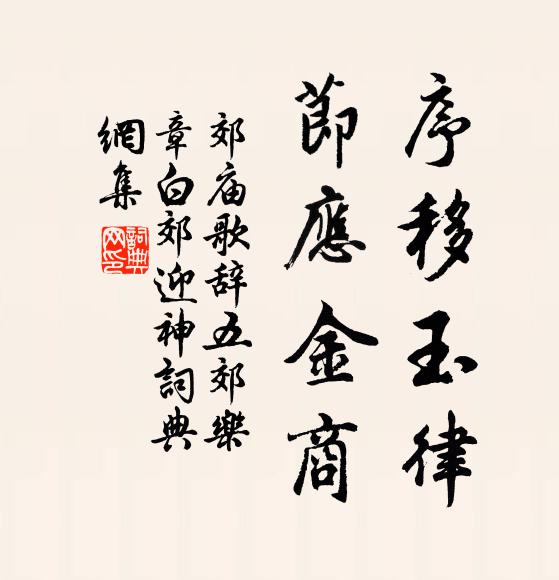 序移玉律
節應金商
郊庙歌辞五郊樂
章白郊迎神詞典
網集
詞典
网印